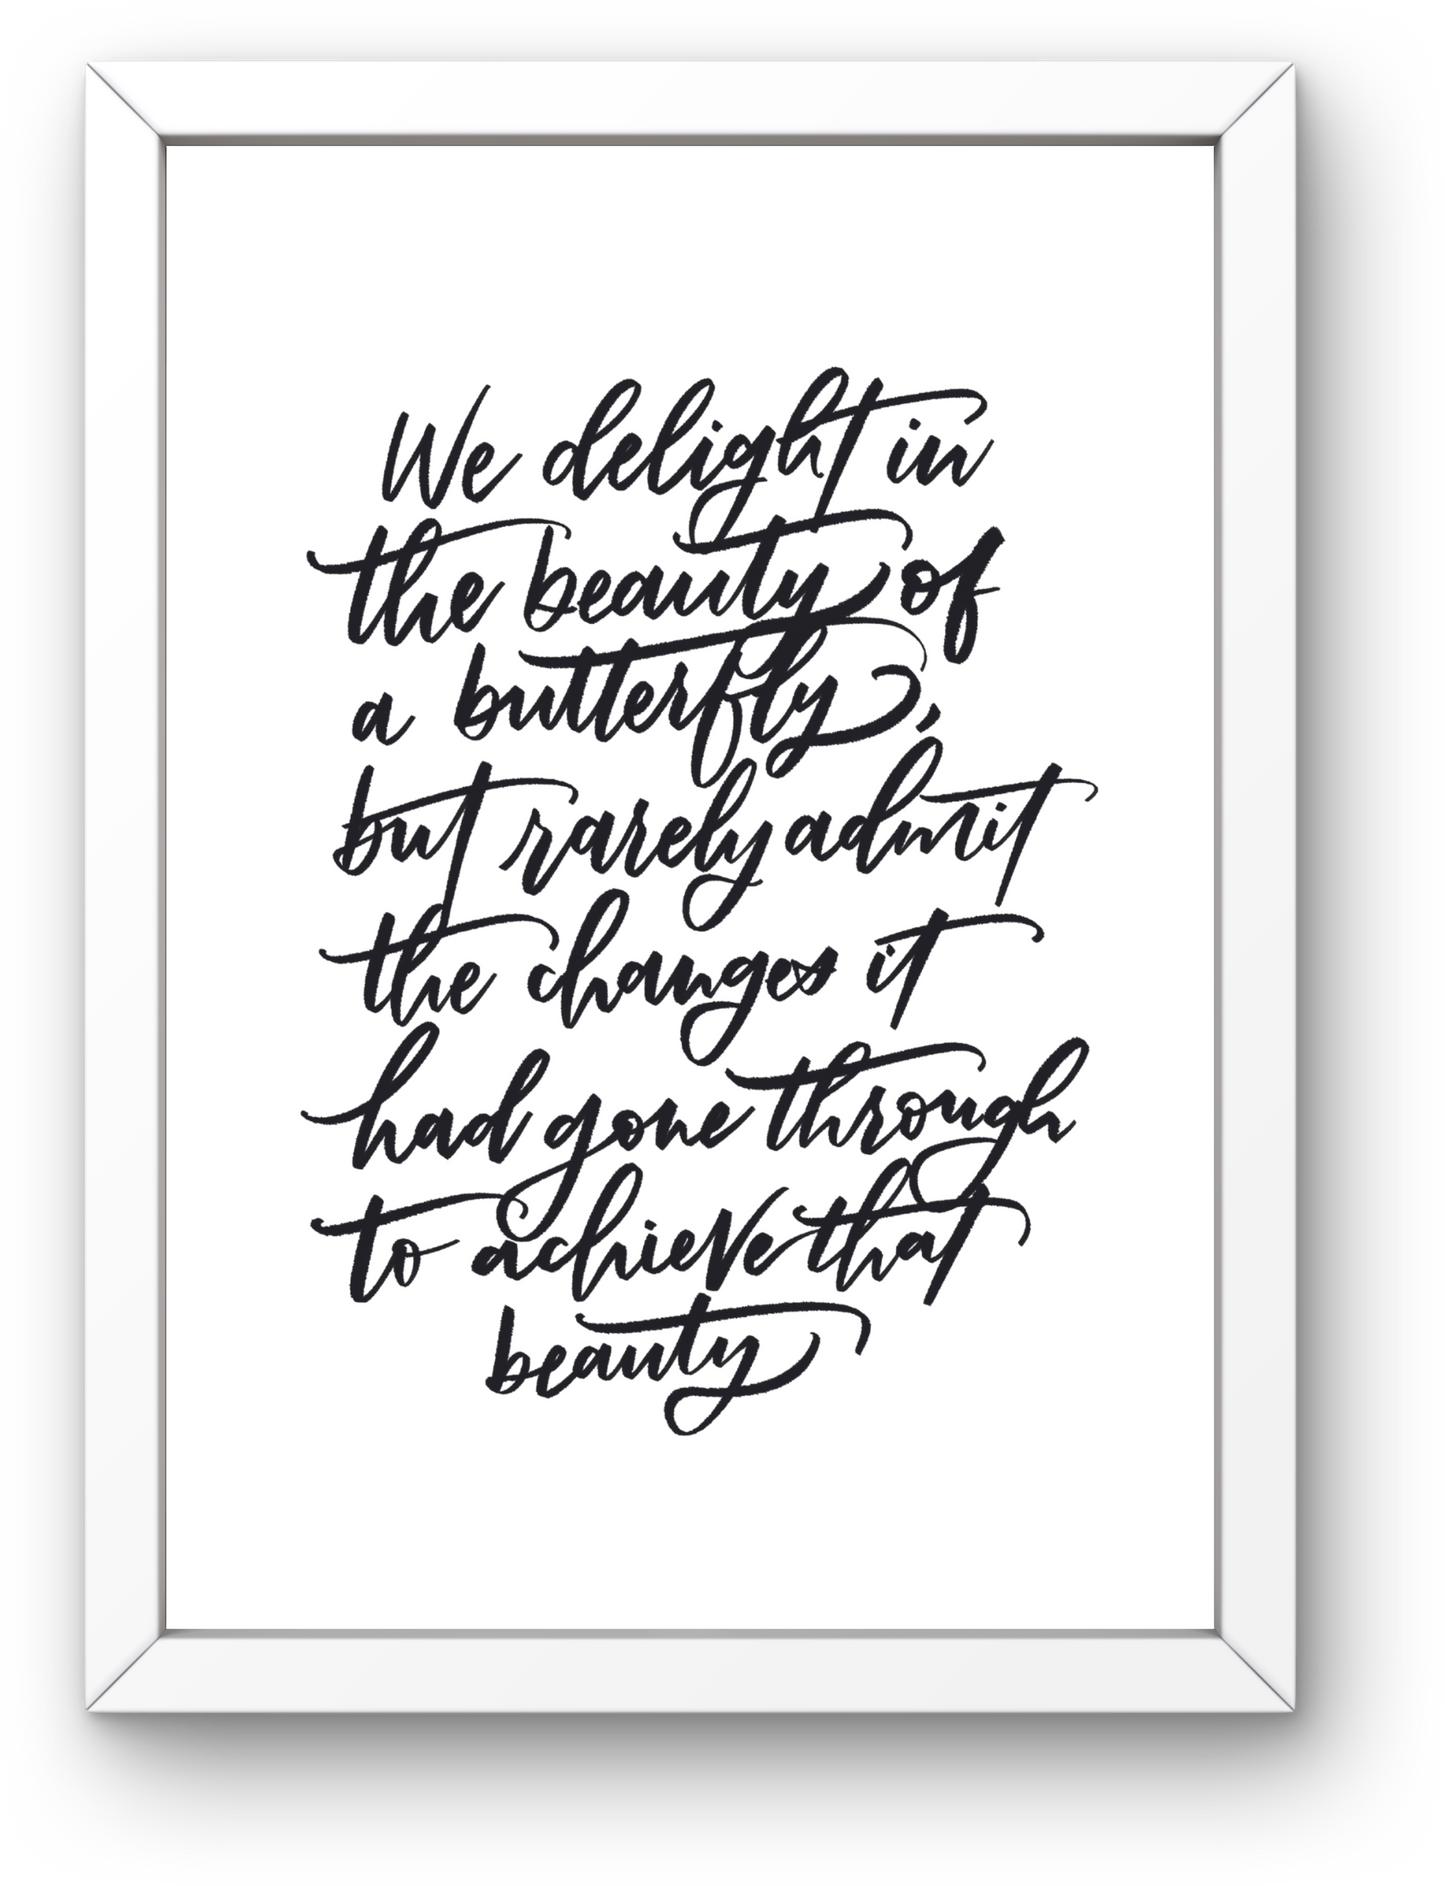 We delight in
the beauty of
a butterfly,
but rarely admit
the changes it
had gone through
to achieve that
beauty